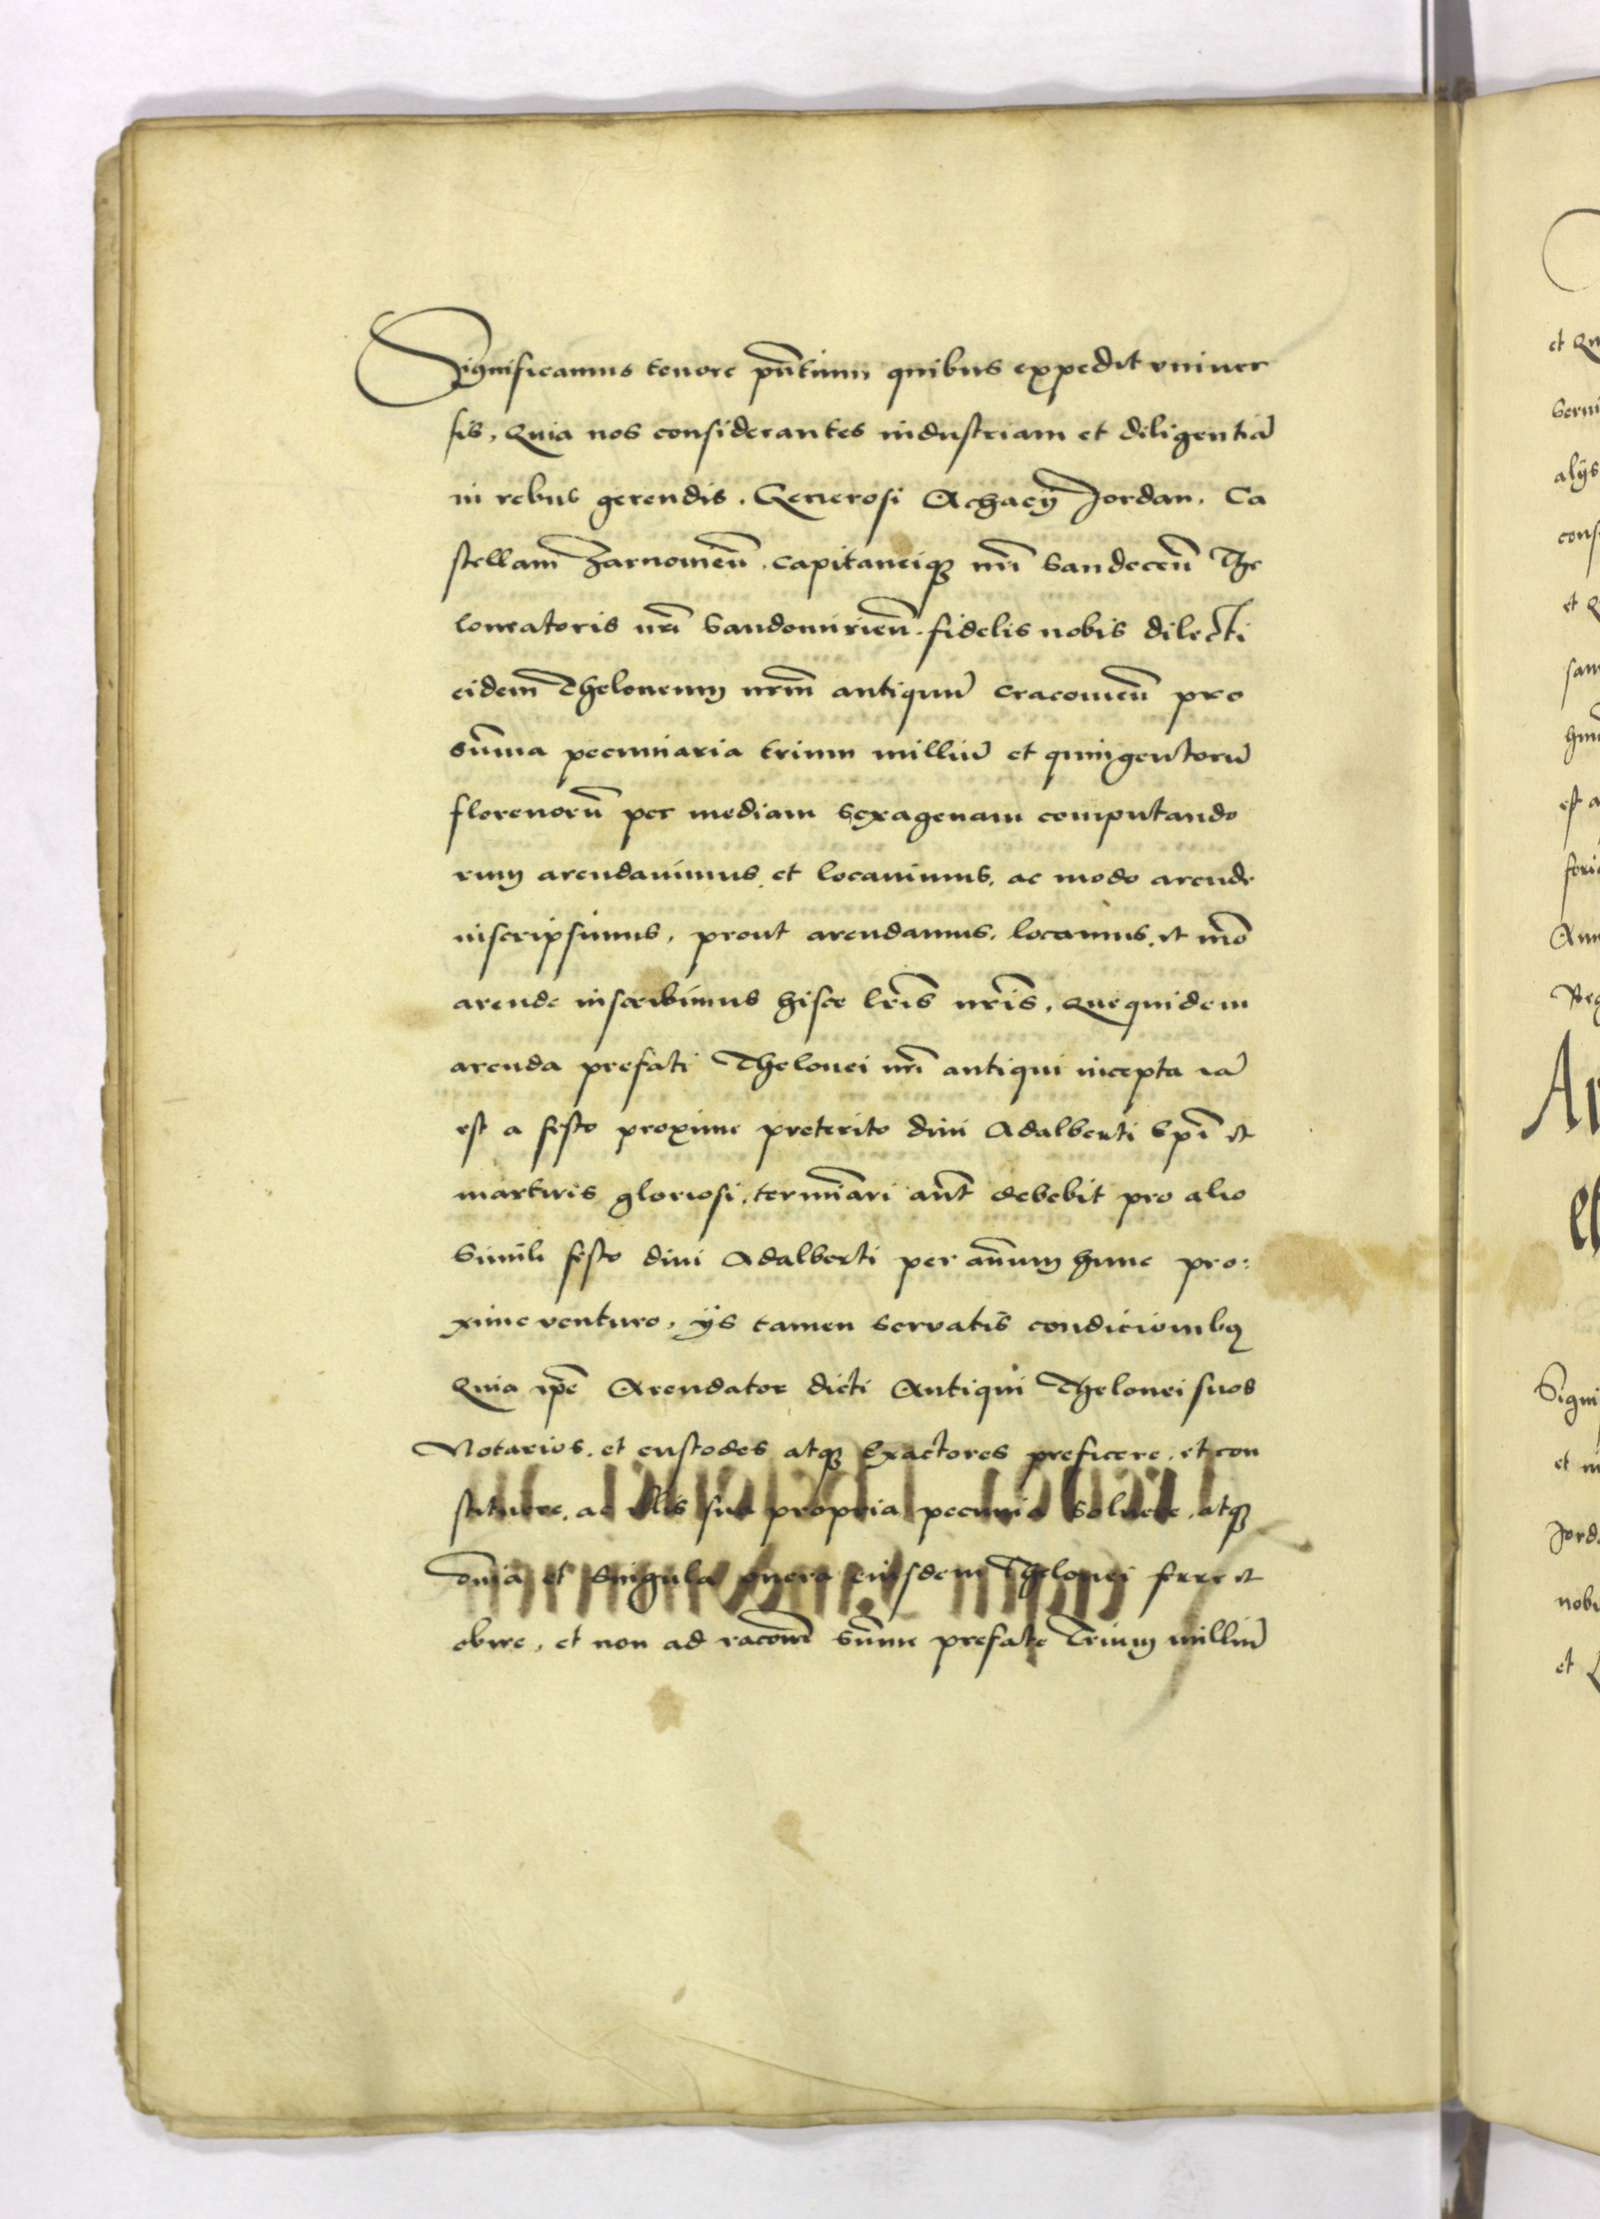 Significamus tenore pñtium quibus expedit vniuer
sis, Quia nos considerantes industriam et diligentiã
in rebus gerendis, Generosi Achacÿ Jordan, Ca
stellani Zarnowieñ, Capitaneiqꝫ nr̃i Sandeceñ The
loneatoris nr̃i Sandomirieñ fidelis nobis dilecti
eidem Theloneum nr̃m antiquũ Cracowieñ pro
sum̃a pecuniaria trium milliũ et quingentorũ
florenorũ per mediam sexagenam computando
rum arendauimus et locauimus, ac modo arende
inscripsimus, prout arendamus, locamus, et mõ
arende inscribimus hisce lr̃is nr̃is, Quequidem
arenda prefati Thelonei nr̃i antiqui incepta iã
est a festo proxime preterito diui Adalberti Ep̃i et
martiris gloriosi, terminari aut̃ debebit pro alio
simili festo diui Adalberti per añum hunc pro:
xime venturo, ÿs tamen seruatis condicionibꝫ
Quia ip̃e Arendator dicti Antiqui Thelonei suos
Notarios, et custodes atqꝫ Exactores preficere, et con
stituere, ac illis sua propria pecunia soluere, atqꝫ
om̃ia et singula onera eiusdem Thelonei ferre et
obire, et non ad racõem sum̃e prefate Trium milliũ
et Qu
alÿs
cons
sam
est a
Ann
Reg
Ar
et
Signi
et in
Jord
nobi
et